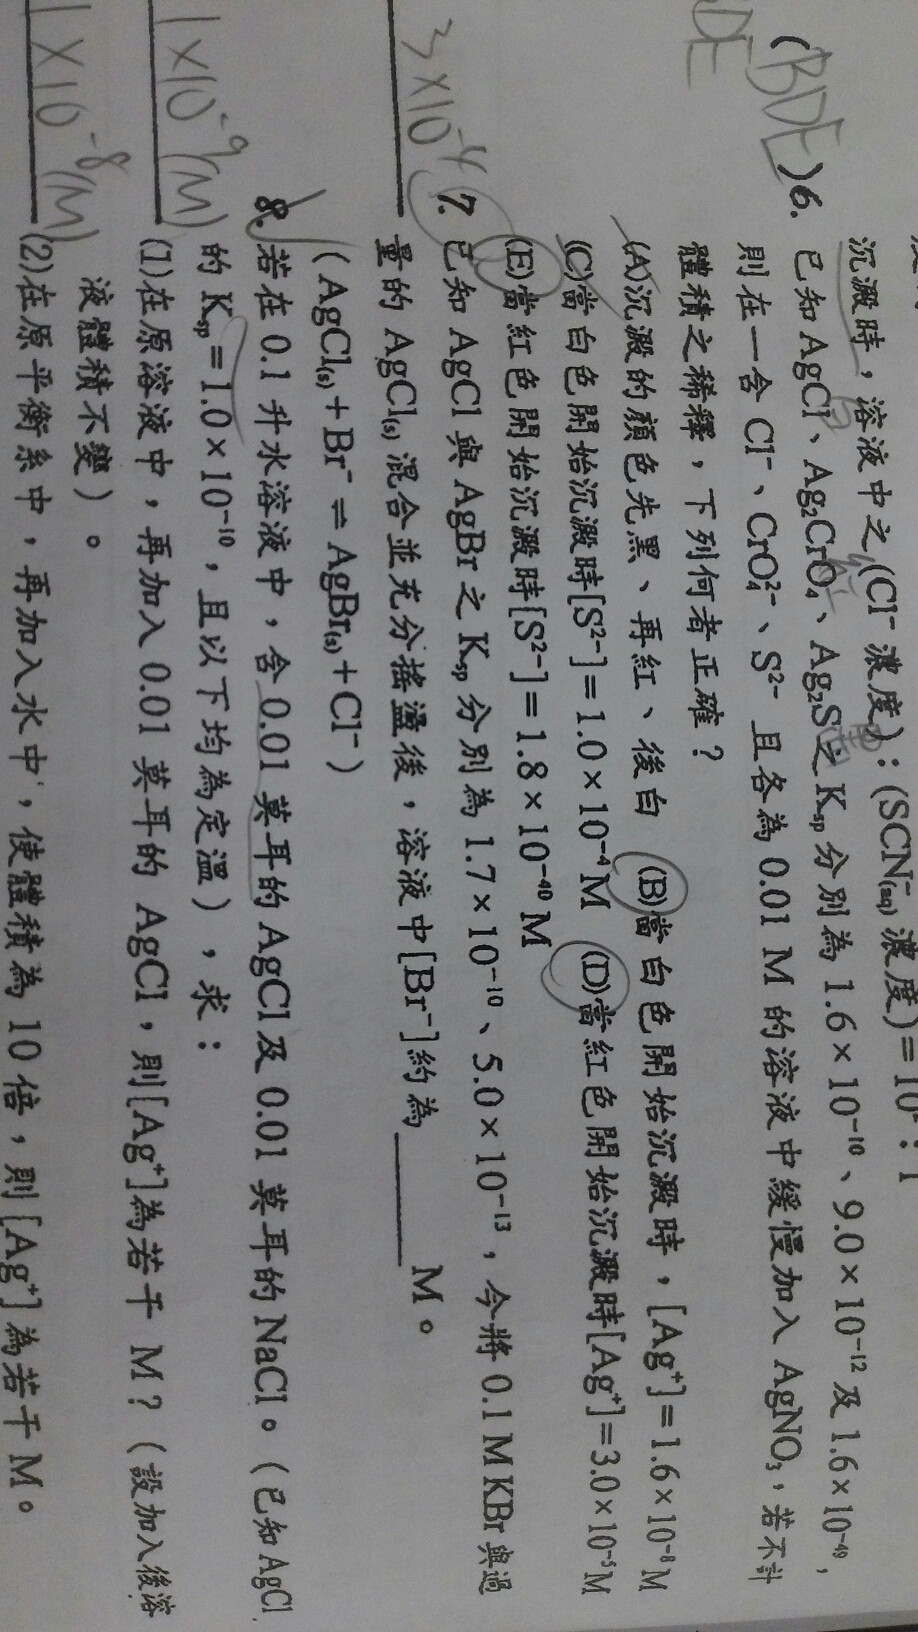 沉澱時，溶液中之(Cl⁻濃度)：(SCN⁻(aq)濃度)＝10²：1
(BDE)6. 已知 AgCl、Ag₂CrO₄、Ag₂S 之 Ksp 分別為 1.6×10⁻¹⁰、9.0×10⁻¹²及 1.6×10⁻⁴⁹，
則在一含 Cl⁻、CrO₄²⁻、S²⁻ 且各為 0.01 M 的溶液中緩慢加入 AgNO₃，若不計
體積之稀釋，下列何者正確？
(A)沉澱的顏色先黑、再紅、後白 (B)當白色開始沉澱時，[Ag⁺]＝1.6×10⁻⁸M
(C)當白色開始沉澱時[S²⁻]＝1.0×10⁻⁴M (D)當紅色開始沉澱時[Ag⁺]＝3.0×10⁻⁵M
(E)當紅色開始沉澱時[S²⁻]＝1.8×10⁻⁴⁰M
3×10⁻⁴ 7. 已知 AgCl 與 AgBr 之 Ksp 分別為 1.7×10⁻¹⁰、5.0×10⁻¹³，今將 0.1 M KBr 與過
量的 AgCl(s)混合並充分搖盪後，溶液中[Br⁻]約為______M。
(AgCl(s)＋Br⁻⇌AgBr(s)＋Cl⁻)
8. 若在 0.1 升水溶液中，含 0.01 莫耳的 AgCl 及 0.01 莫耳的 NaCl。(已知 AgCl
的 Ksp＝1.0×10⁻¹⁰，且以下均為定溫)，求：
1×10⁻⁹(M) (1)在原溶液中，再加入 0.01 莫耳的 AgCl，則[Ag⁺]為若干 M？(設加入後溶
液體積不變)。
1×10⁻⁸(M) (2)在原平衡系中，再加入水中，使體積為 10 倍，則[Ag⁺]為若干 M。